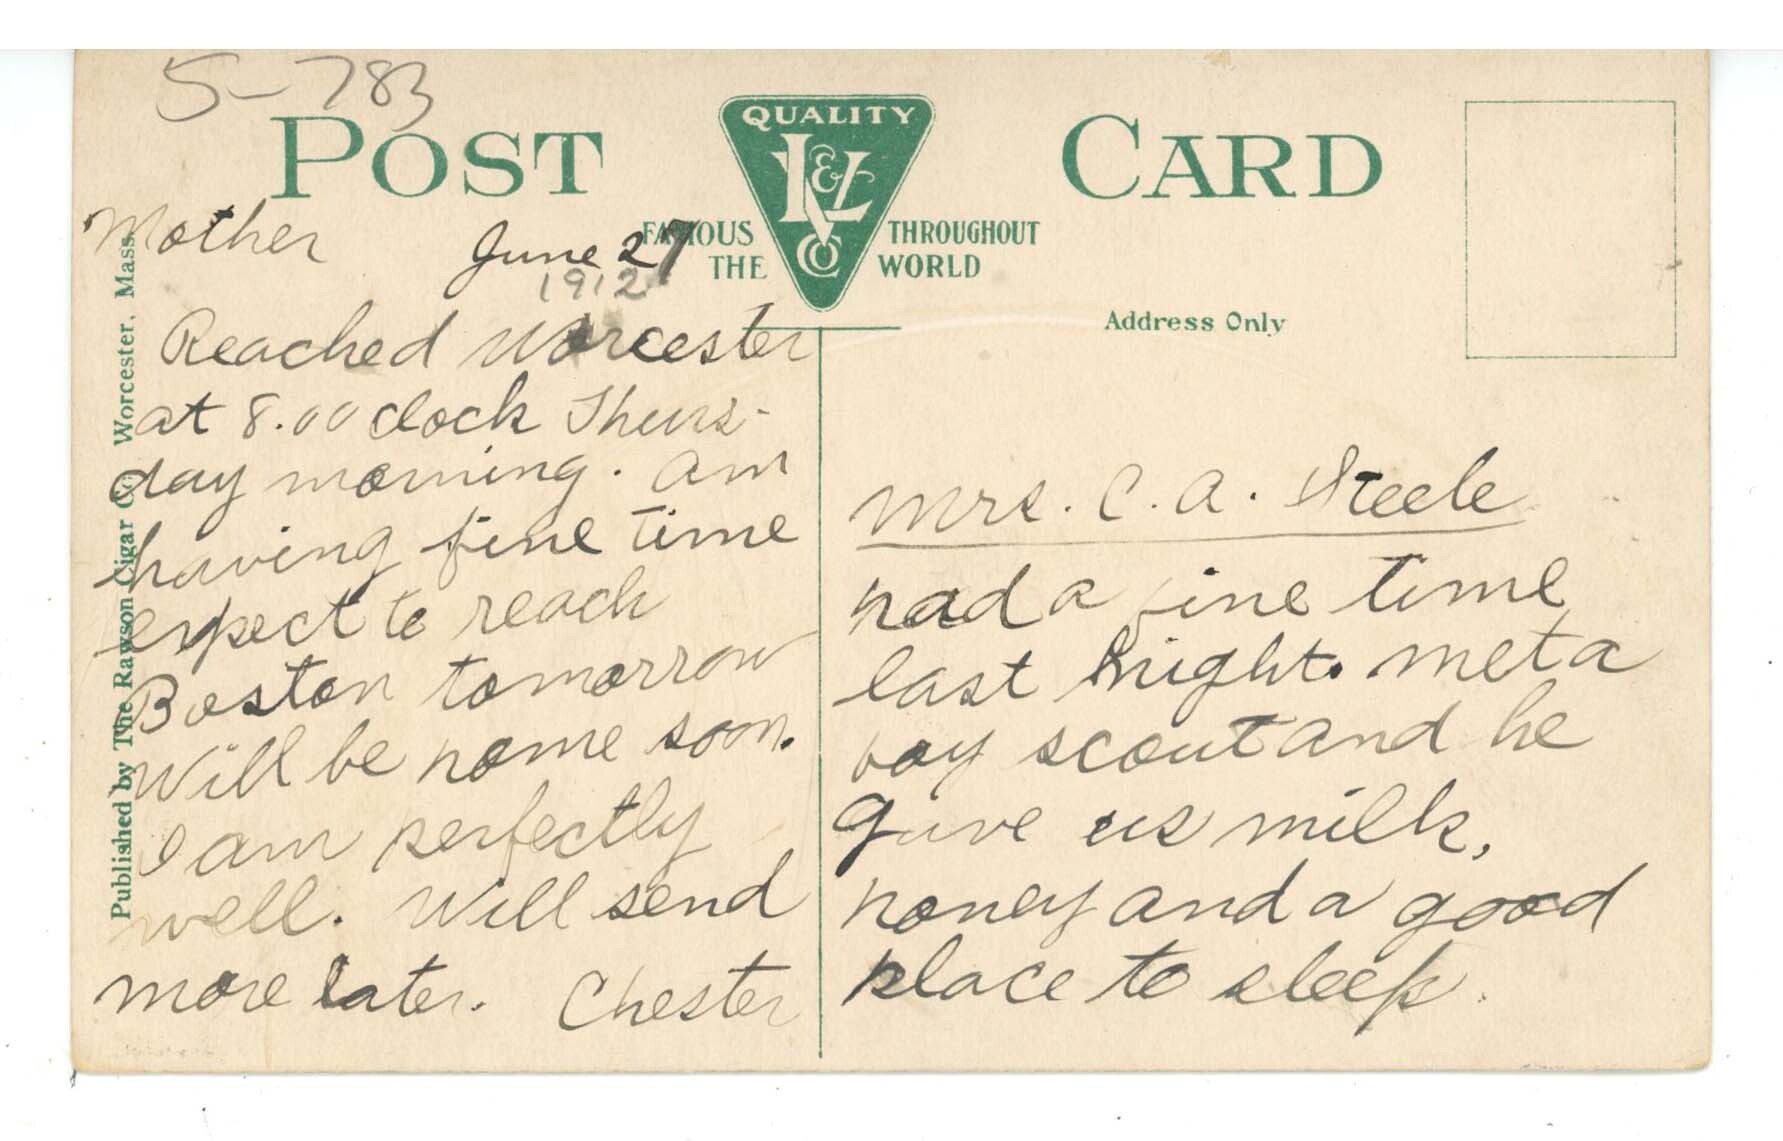 5-783
POST CARD
QUALITY
L & L
CO
FAMOUS THROUGHOUT
THE WORLD
Address Only
Published by The Rawson Cigar Co. Worcester, Mass.
Mother June 27
1912
Reached Worcester
at 8.00 clock Thurs-
day morning. am
having fine time
expect to reach
Boston tomorrow
Will be home soon.
I am perfectly
well. Will send
more later. Chester
Mrs. C. A. Steele
had a fine time
last night. met a
boy scout and he
gave us milk,
honey and a good
place to sleep.